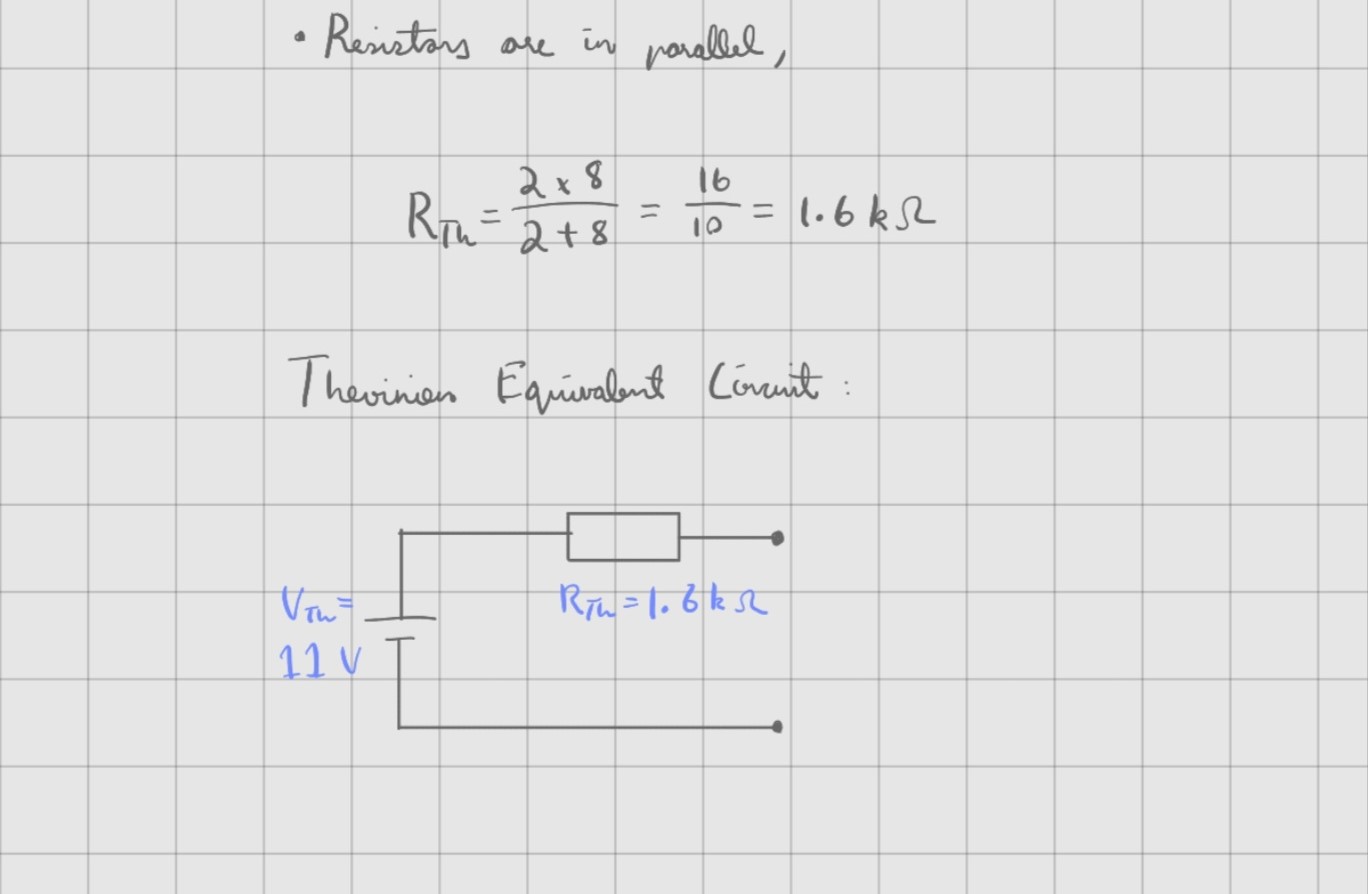 • Resistors are in parallel,
R_Th = 2 x 8 / 2 + 8 = 16 / 10 = 1.6 k Ω
Thevinien Equivalent Circuit :
V_Th =
R_Th = 1.6 k Ω
11 V